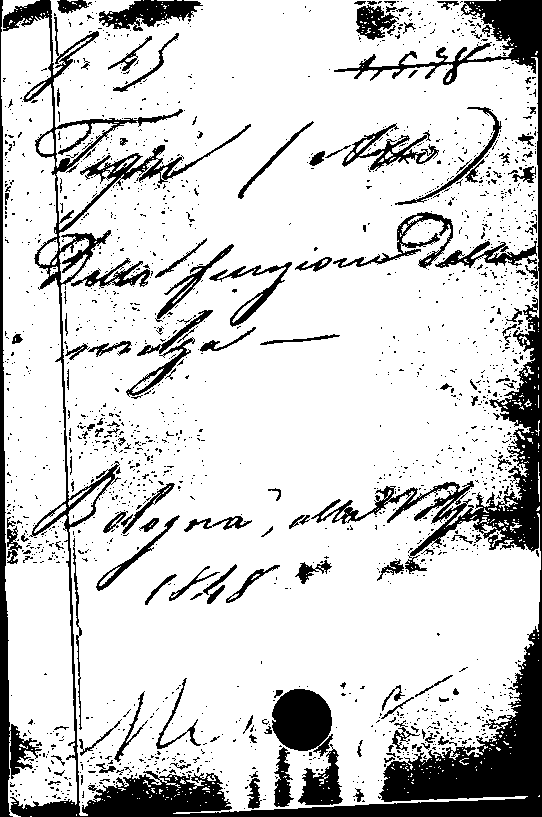 G. 45 1.5.78
Tigri (Atto)
Della funzione della
milza —
Bologna, alla Volpe
1848